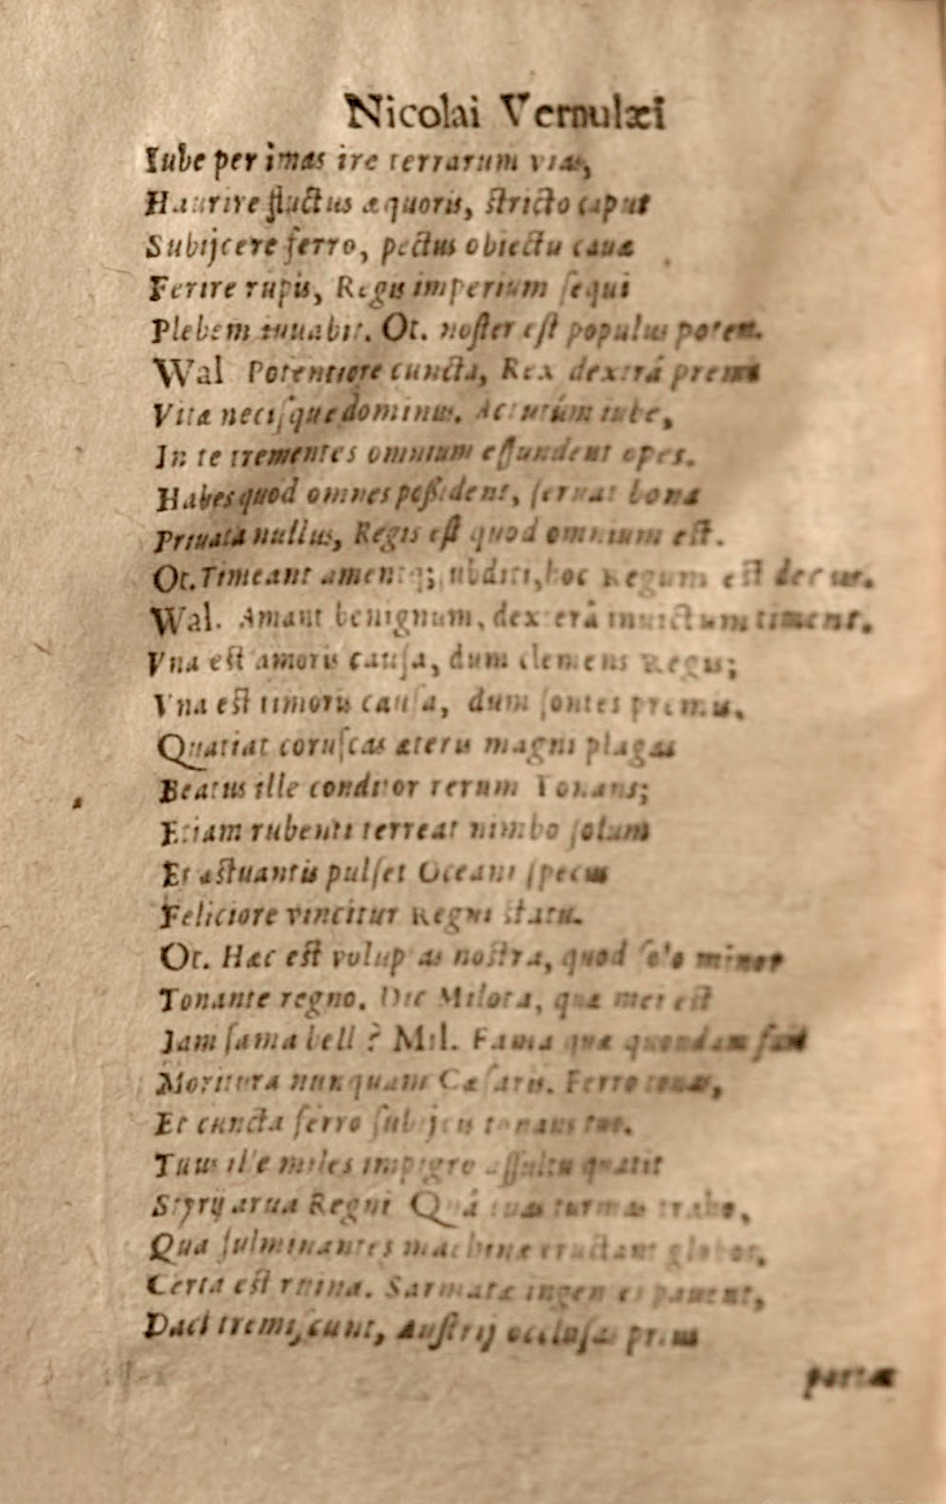 Nicolai Vernulæi
Iube per imas ire terrarum vias,
Haurire fluctus æquoris, stricto caput
Subijcere ferro, pectus obiectu cauæ
Ferire rupis, Regis imperium sequi
Plebem iuuabit. Ot. noster est populus potens.
Wal Potentiore cuncta, Rex dexterá premis
Vitæ necisque dominus. Actutúm iube,
In te trementes omnium effundent opes.
Habes quod omnes possident, seruat bona
Priuata nullus, Regis est quod omnium est.
Ot. Timeant amentq; subditi, hoc Regum est decus.
Wal. Amant benignum, dexterâ inuictum timent.
Vna est amoris causa, dum clemens Regis;
Vna est timoris causa, dum sontes premis.
Quatiat coruscas æteris magni plagas
Beatus ille conditor rerum Tonans;
Etiam rubenti terreat nimbo solum
Et æstuantis pulset Oceani specus
Feliciore vincitur Regni statu.
Ot. Hæc est voluptas nostra, quod solo minor
Tonante regno. Dic Milota, quæ mei est
Jam fama belli? Mil. Fama quæ quondam fuit
Moritura nunquam Cæsaris. Ferro tonas,
Et cuncta ferro subijcis tonans tuo.
Tuus ille miles impigro assultu quatit
Styrij arua Regni Quá tuas turmas trahe,
Qua fulminantes machinæ eructant globos,
Certa est ruina. Sarmatæ ingentes pauent,
Daci tremiscunt, Austrij occlusas prius
portæ